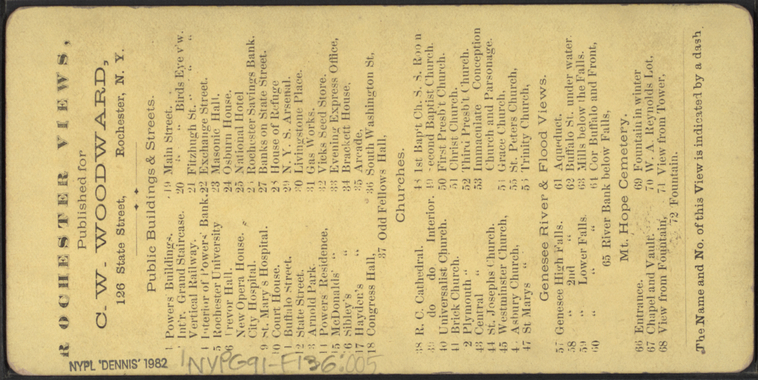 ROCHESTER VIEWS,
Published for
C. W. WOODWARD,
126 State Street, Rochester, N. Y.
Public Buildings & Streets.
1 Powers Buildings.
Int'r. Grand Staircase.
Vertical Railway.
4 Interior of Powers' Bank.
5 Rochester University
6 Trevor Hall.
New Opera House.
City Hospital.
9 St. Mary's Hospital.
10 Court House.
11 Buffalo Street.
12 State Street.
13 Arnold Park.
14 Powers Residence.
15 McDonalds' "
16 Sibley's "
17 Hayden's "
18 Congress Hall,
19 Main Street.
20 " " Birds Eye v'w.
21 Fitzhugh St. "
22 Exchange Street.
23 Masonic Hall.
24 Osburn House.
25 National Hotel
Rochester Savings Bank.
27 Banks on State Street.
28 House of Refuge
29 N. Y. S. Arsenal.
30 Livingstone Place.
31 Gas Works.
32 Vicks Seed Store.
33 Evening Express Office,
34 Brackett House.
35 Arcade.
36 South Washington St,
37 Odd Fellows Hall.
Churches.
38 R. C. Cathedral.
39 do do Interior.
40 Universalist Church.
41 Brick Church.
42 Plymouth "
43 Central "
44 St. Josephs Church.
45 Westminster Church,
46 Asbury Church,
47 St Marys "
48 1st Bap't Ch. S. S. Room
49 Second Baptist Church.
50 First Presb't Church.
51 Christ Church.
52 Third Presb't Church.
53 Immaculate Conception
Church and Parsonage.
54 Grace Church.
55 St. Peters Church,
56 Trinity Church,
Genesee River & Flood Views.
57 Genesee High Falls.
58 " 2nd "
59 " Lower Falls.
60 "
61 Aqueduct.
62 Buffalo St. under water
63 Mills below the Falls.
64 Cor Buffalo and Front,
65 River Bank below Falls,
Mt. Hope Cemetery.
66 Entrance.
67 Chapel and Vault.
68 View from Fountain,
69 Fountain in winter
70 W. A. Reynolds Lot,
71 View from Tower,
72 Fountain.
The Name and No. of this View is indicated by a dash
NYPL 'DENNIS' 1982
NYPG91-F136.005